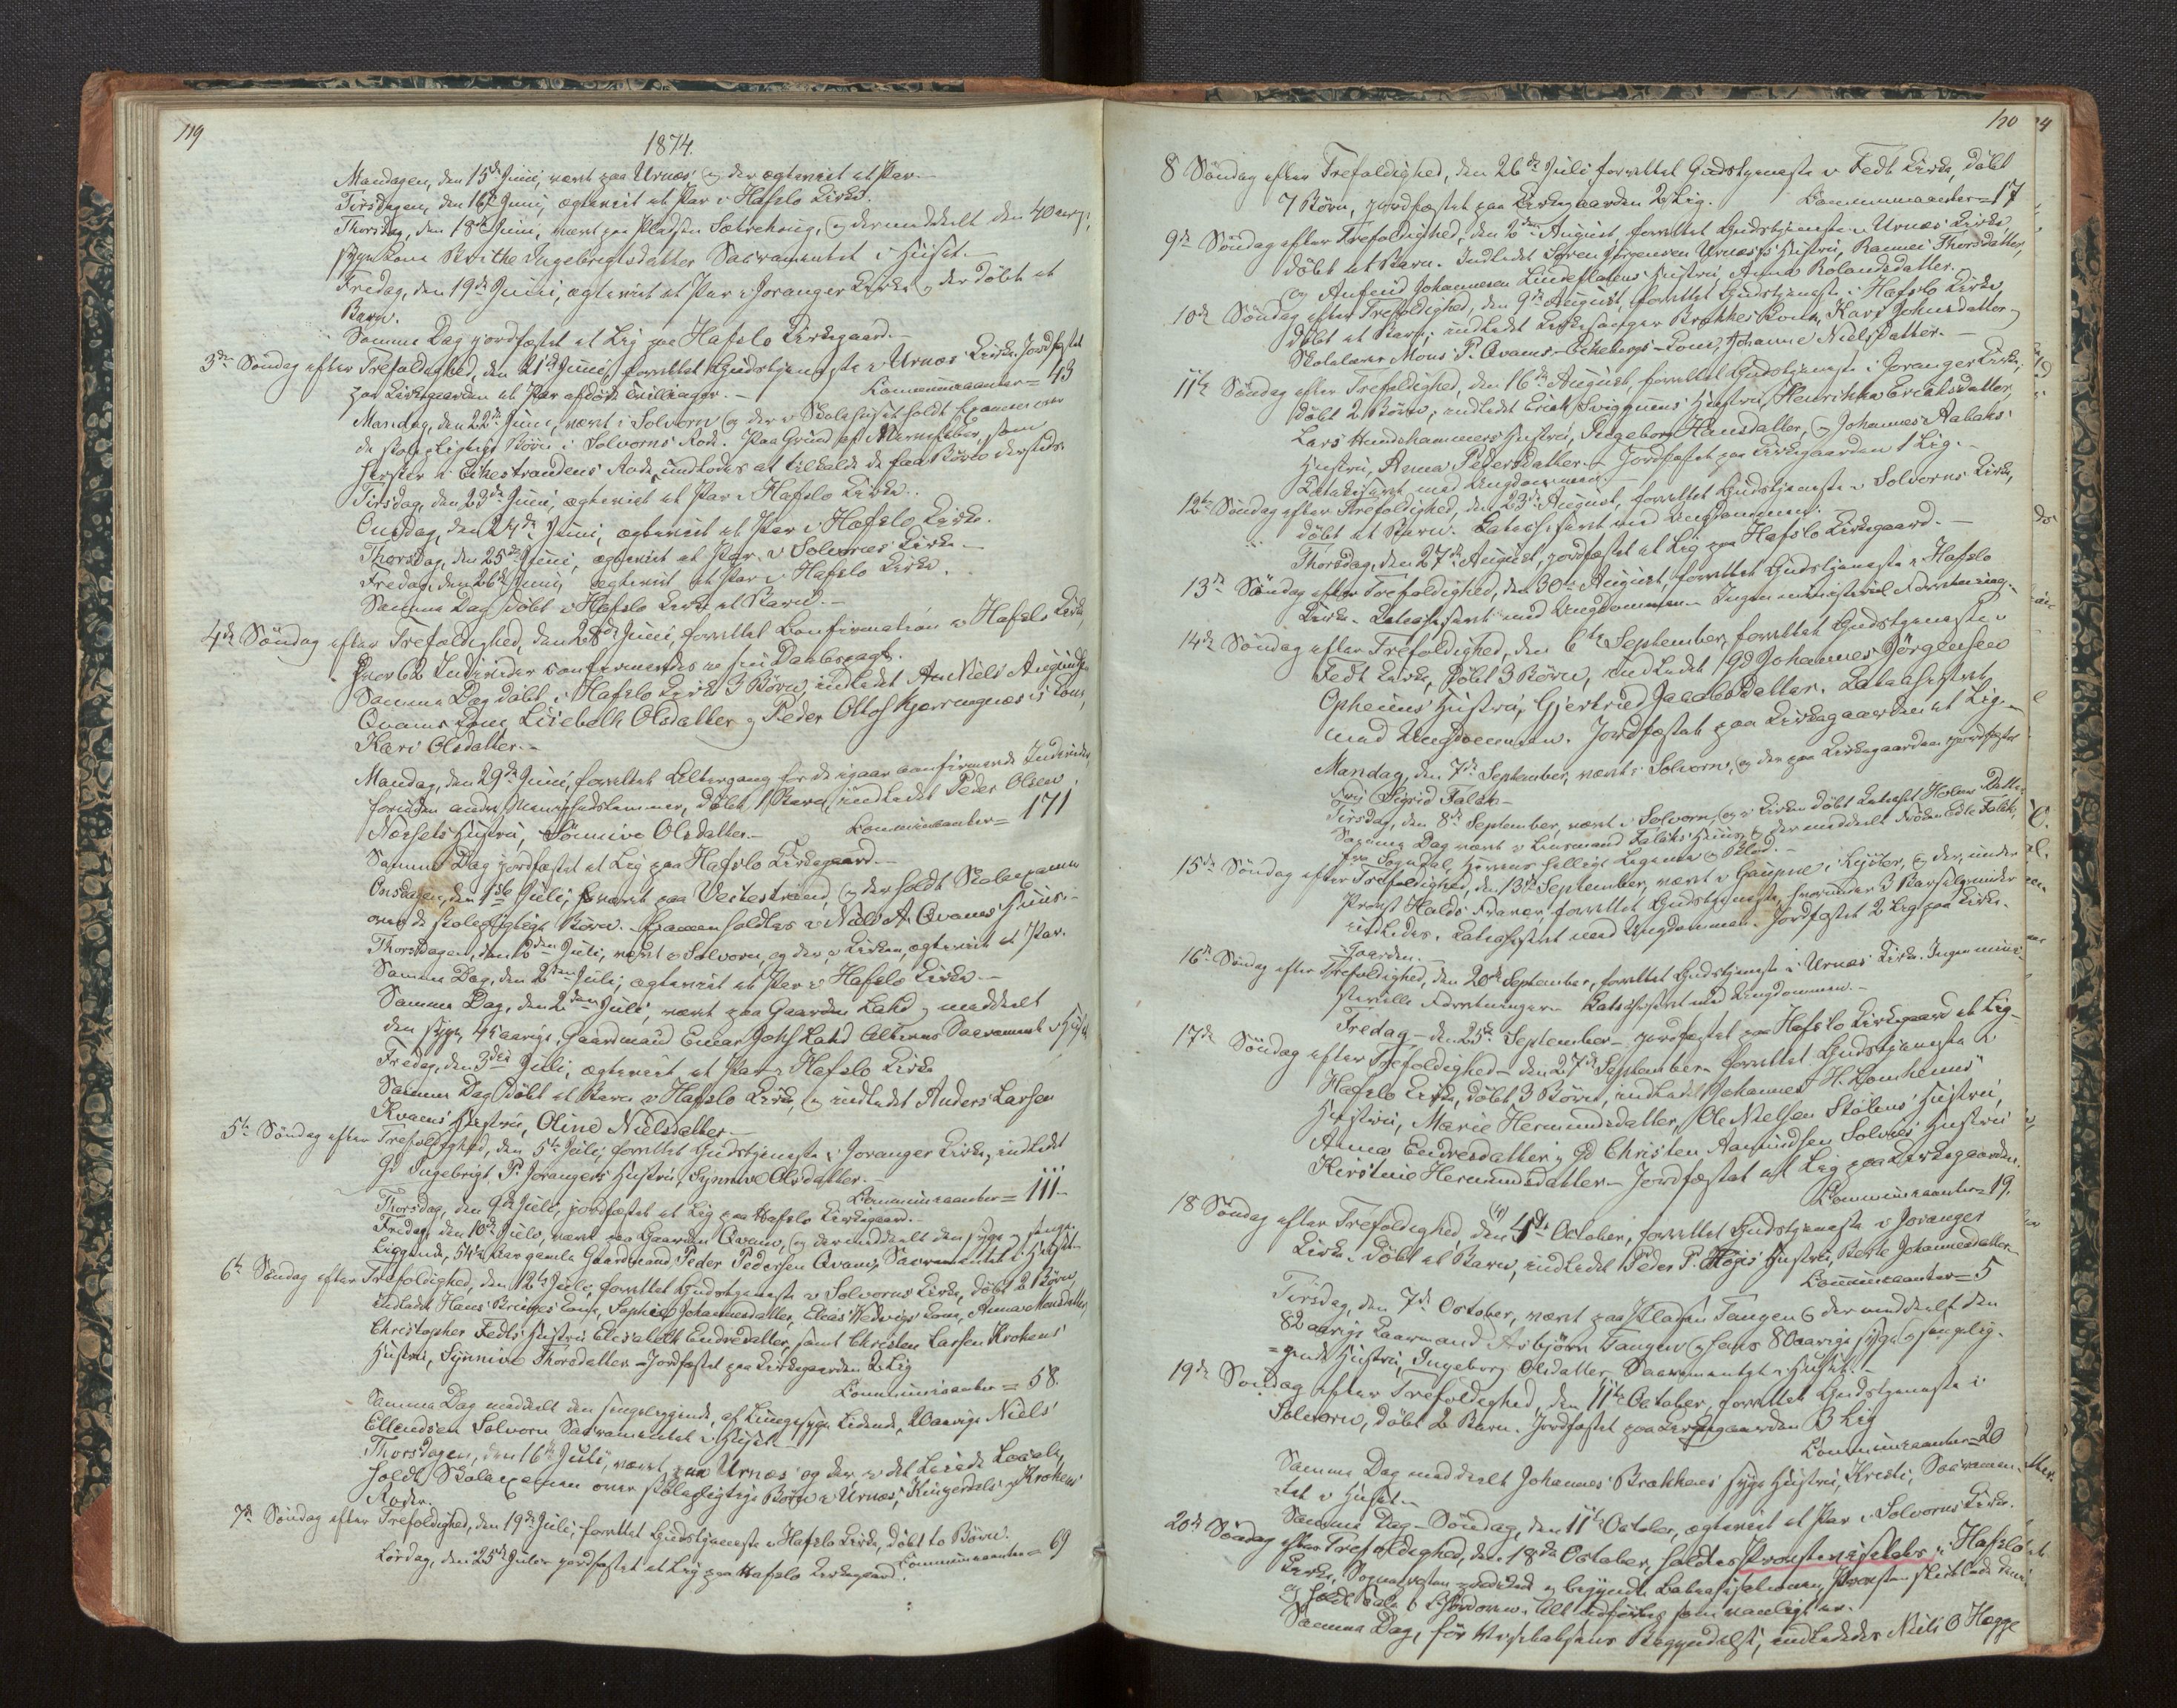 119
1874.
Mandagen, den 15de Juni, været paa Urnæs og der ægteviet et Par.
Tirsdagen, den 16de Juni, ægteviet et Par i Hafslo Kirke.
Thorsdag, den 18de Juni, været paa Pladsen Sætrehaug, og der meddeelt den 40aarige
syge Kone Brithe Ingebrigtsdatter Sacramentet i Huset.
Fredag, den 19de Juni, ægteviet et Par i Joranger Kirke og der döbt et
Barn.
Samme Dag jordfæstet et Lig paa Hafslo Kirkegaard.
3die Söndag efter Trefoldighed, den 21de Juni, forrettet Gudstjeneste i Urnæs Kirke. Jordfæstet
paa Kirkegaarden et Par afdöde Tvillinger. - Communicanter = 43
Mandag, den 22de Juni, været i Solvorn og der i Skolehuset holdt Examen over
de skolepligtige Börn i Solvorns Rode. Paa Grund af Nervefeber, som
hersker i Eikestrandens Rode undlodes at tilkalde de faa Börn dersteds.
Tirsdag, den 23de Juni, ægteviet et Par i Hafslo Kirke.
Onsdag, den 24de Juni, ægteviet et Par i Hafslo Kirke.
Thorsdag, den 25de Juni, ægteviet et Par i Solvorns Kirke.
Fredag, den 26de Juni, ægteviet et Par i Hafslo Kirke.
Samme Dag döbt i Hafslo Kirke et Barn.
4de Söndag efter Trefoldighed, den 28de Juni, forrettet Confirmation i Hafslo Kirke,
hvor 62 Individer confirmeredes i sin Daabespagt.
Samme Dag döbt i Hafslo Kirke 3 Börn, indledet Niels
Qvams Kone, Lisebeth Olsdatter og Peder Ottos Kjærringnæs's Kone,
Kari Olsdatter.
Mandag, den 29de Juni, forrettet Altergang for de igaar confirmerede Individer,
foruden andre Menighedslemmer, döbt 1 Barn, indledet Peder Olsen
Næsets Hustru, Sönnive Olsdatter. Communicanter = 171
Samme Dag jordfæstet et Lig paa Hafslo Kirkegaard.
Onsdagen, den 1ste Juli, været paa Veitestrand, og der holdt Skoleexamen
over de skolepligtige Börn. Examen holdtes i Niels A. Qvams Huus.
Thorsdagen, den 2den Juli, været i Solvorn, og der, i Kirken, ægteviet et Par.
Samme Dag, den 2den Juli, ægteviet et Par i Hafslo Kirke.
Samme Dag, den 2den Juli, været paa Gaarden Lahd og meddeelt
den syge, 45aarige Gaardmand Einar Lahd Alterens Sacrament i Huset.
Fredag, den 3die Juli, ægteviet et Par i Hafslo Kirke
Samme Dag döbt et Barn i Hafslo Kirke, og indledet Anders Larsen
Kvams Hustru, Oline Nielsdatter.
5te Söndag efter Trefoldighed, den 5te Juli, forrettet Gudstjeneste i Joranger Kirke, indledet
Gd Ingebrigt P. Jorangers Hustru, Synneve Olsdatter.
Communicanter = 111
Thorsdag, den 9de Juli, jordfæstet et Lig paa Hafslo Kirkegaard.
Fredag, den 10de Juli, været paa Gaarden Qvam, og der meddeelt den syge og senge-
liggende, 54 1/2 Aar gamle Gaardmand, Peder Pedersen Qvam, Sacramentet i Huset.
6te Söndag efter Trefoldighed, den 12te Juli, forrettet Gudstjeneste i Solvorns Kirke, döbt 2 Börn,
indledet Hans Kone, Sophie Johannesdatter, Elias Kone, Anna Monsdatter,
Christopher Fedts Hustru Elisabeth Endredatter, samt Christen Larsen Krokens
Hustru, Synnive Thorsdatter. - Jordfæstet paa Kirkegaarden 2 Lig
Communicanter = 58.
Samme Dag meddeelt den sengeliggende, af Lungesyge lidende, aarige Niels
Ellendsen Solvorn Sacramentet i Huset.
Thorsdagen, den 16de Juli, været paa Urnæs og der i det Leiede Locale,
holdt Skoleexamen over skolepligtige Börn i Urnæs, og Krokens
Roder.
7de Söndag efter Trefoldighed, den 19de Juli, forrettet Gudstjeneste i Hafslo Kirke, döbt to Börn.
Communicanter = 69
Lördag, den 25de Juli jordfæstet et Lig paa Hafslo Kirkegaard.
120
8 Söndag efter Trefoldighed, den 26de Juli forrettet Gudstjeneste i Fedt Kirke, döbt
7 Börn, jordfæstet paa Kirkegaarden 2 Lig. Communicanter = 17
9de Söndag efter Trefoldighed, den 2den August, forrettet Gudstjeneste i Urnæs Kirke,
döbt et Barn. Indledet Sören Jörgensen Urnæs's Hustru, Rannei Thorsdatter,
og Anfind Johannesen Lindehaugens Hustru, Anna Rolandsdatter.
10de Söndag efter Trefoldighed, den 9de August, forrettet Gudstjeneste i Hafslo Kirke,
döbt et Barn; indledet Kirkesanger Brækkes Kone, Kari Johnsdatter og
Skolelærer Mons P. Qvams-Eikebergs-Kone, Johanne Nielsdatter.
11te Söndag efter Trefoldighed, den 16de August, forrettet Gudstjeneste i Joranger Kirke,
döbt 2 Börn; indledet Erich Sviggums Hustru, Henrikka Erichsdatter,
Lars Hundshammers Hustru, Ingeborg Hansdatter, og Johannes Aabakkes
Hustru, Anna Pedersdatter. - Jordfæstet paa Kirkegaarden 1 Lig.
Catechiseret med Ungdommen.
12te Söndag efter Trefoldighed, den 23de August, forrettet Gudstjeneste i Solvorns Kirke,
döbt et Barn. Catechiseret med Ungdommen.
Thorsdag, den 27de August, jordfæstet et Lig paa Hafslo Kirkegaard.
13de Söndag efter Trefoldighed, den 30te August, forrettet Gudstjeneste i Hafslo
Kirke. Catechiseret med Ungdommen. Ingen ministeriel Forretning.
14de Söndag efter Trefoldighed, den 6te September, forrettet Gudstjeneste i
Fedt Kirke, döbt 3 Börn, indledet Gd Johannes Jörgensen
Opheims Hustru, Gjertrud Jacobsdatter. Catechiseret
med Ungdommen. Jordfæstet paa Kirkegaarden et Lig.
Mandag, den 7de September, været i Solvorn, og der paa Kirkegaarden jordfæstet
Sigrid Falck.
Tirsdag, den 8de September, været i Solvorn, og i Kirken döbt
Samme Dag været i Lensmand Falcks Huus, og der meddeelt Fröken Edle Falck,
fra Sogndal, Herrens hellige Legeme og Blod.
15de Söndag efter Trefoldighed, den 13de September, været i Gaupne i Lyster, og der, under
Provst Halds Fravær, forrettet Gudstjeneste, hvorunder 3 Barselqvinder
indledes. Catechiseret med Ungdommen. Jordfæstet 2 Lig paa Kirke-
Gaarden.
16de Söndag efter Trefoldighed, den 20de September, forrettet Gudstjeneste i Urnæs Kirke. Ingen mini-
sterielle Forretninger. Catechiseret med Ungdommen.
Fredag, den 25de September, jordfæstet paa Hafslo Kirkegaard et Lig.
17de Söndag efter Trefoldighed, den 27de September, forrettet Gudstjeneste i
Hafslo Kirke, döbt 3 Börn, indledet Johannes H. Lomheims
Hustru, Marie Hermundsdatter, Ole Nielsen Stölens Hustru,
Anna Endresdatter, Gd Christen Aamundsen Solves Hustru
Kirstine Hermundsdatter. Jordfæstet et Lig paa Kirkegaarden.
Communicanter = 19.
18 Söndag efter Trefoldighed, den 4de October, forrettet Gudstjeneste i Joranger
Kirke. Döbt et Barn, indledet Peder P. Hustru, Berte Johannesdatter.
Communicanter = 5
Tirsdag, den 7de October, været paa Pladsen Tangen og der meddeelt den
82aarige Kaarmand Asbjörn Tangen og hans 80aarige syge og sengelig-
gende Hustru, Ingeborg Olsdatter, Sacramentet i Huset.
19de Söndag efter Trefoldighed, den 11te October, forrettet Gudstjeneste i
Solvorn, döbt 2 Barn. Jordfæstet paa Kirkegaarden 3 Lig
Communicanter = 20
Samme Dag meddeelt Johannes Brækkes syge Hustru, Kristi, Sacramen-
tet i Huset.
Samme Dag - Söndag, den 11te October, ægteviet et Par i Solvorns Kirke.
20de Söndag efter Trefoldighed, den 18de October, holdtes Provstevisitats i Hafslo
Kirke. Sognepresten prædikede og begyndte Catechisationen, Provsten
og holdt Tale i Chordören. Alt udförtes som vanligt er.
Samme Dag, för Visitatsens Begyndelse, indledes Niels O Hegge